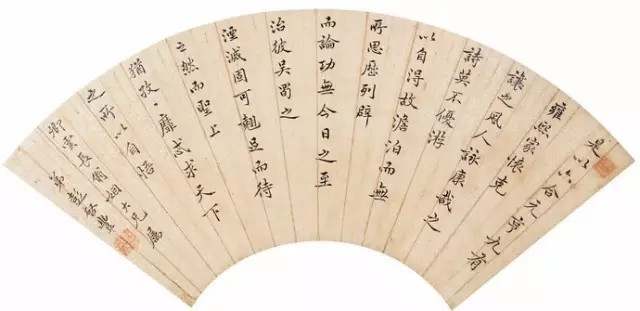 是以六合元亨九有
雍熙家懷克
讓之風人詠康哉之
詩莫不優游
以自得故澹泊而無
所思歷列辟
而論功無今日之至
治彼吳蜀之
湮滅固可翹足而待
之然而聖上
猶孜〻靡忒求天下
之所以自悟
雲辰翁姻大兄屬
弟彭啓豐